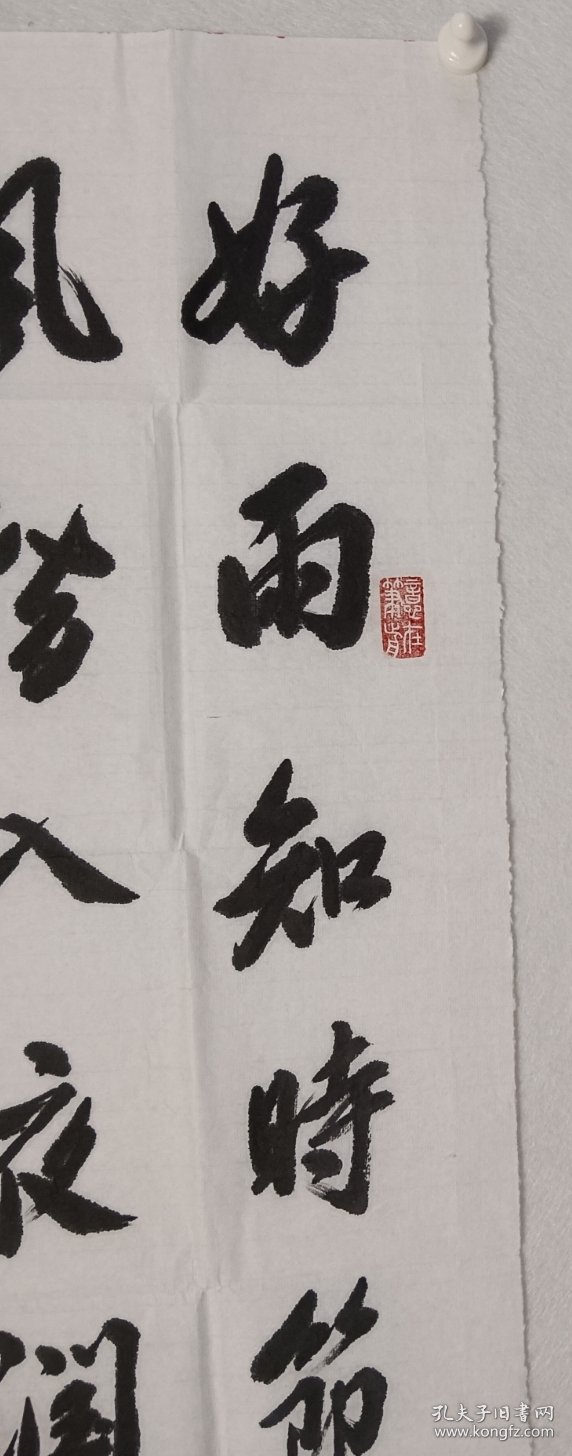 好雨知時節
風潛入夜潤
意在筆前
孔夫子旧书网
www.kongfz.com